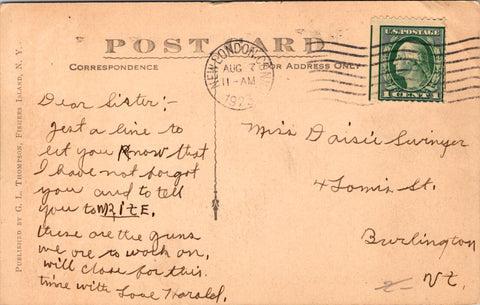 POST CARD
CORRESPONDENCE
FOR ADDRESS ONLY
NEW LONDON CONN.
AUG 7
11-AM
1923
U.S. POSTAGE
1 CENT 1
PUBLISHED BY G. L. THOMPSON, FISHERS ISLAND, N. Y.
Dear Sister:-
Jest a line to
let you Know that
I have not forgot
you and to tell
you to WRITE.
these are the guns
we are to work on,
will close for this
time with Love Harold.
Miss Daisie Swinger
4 Lomis St.
Burlington
Vt.